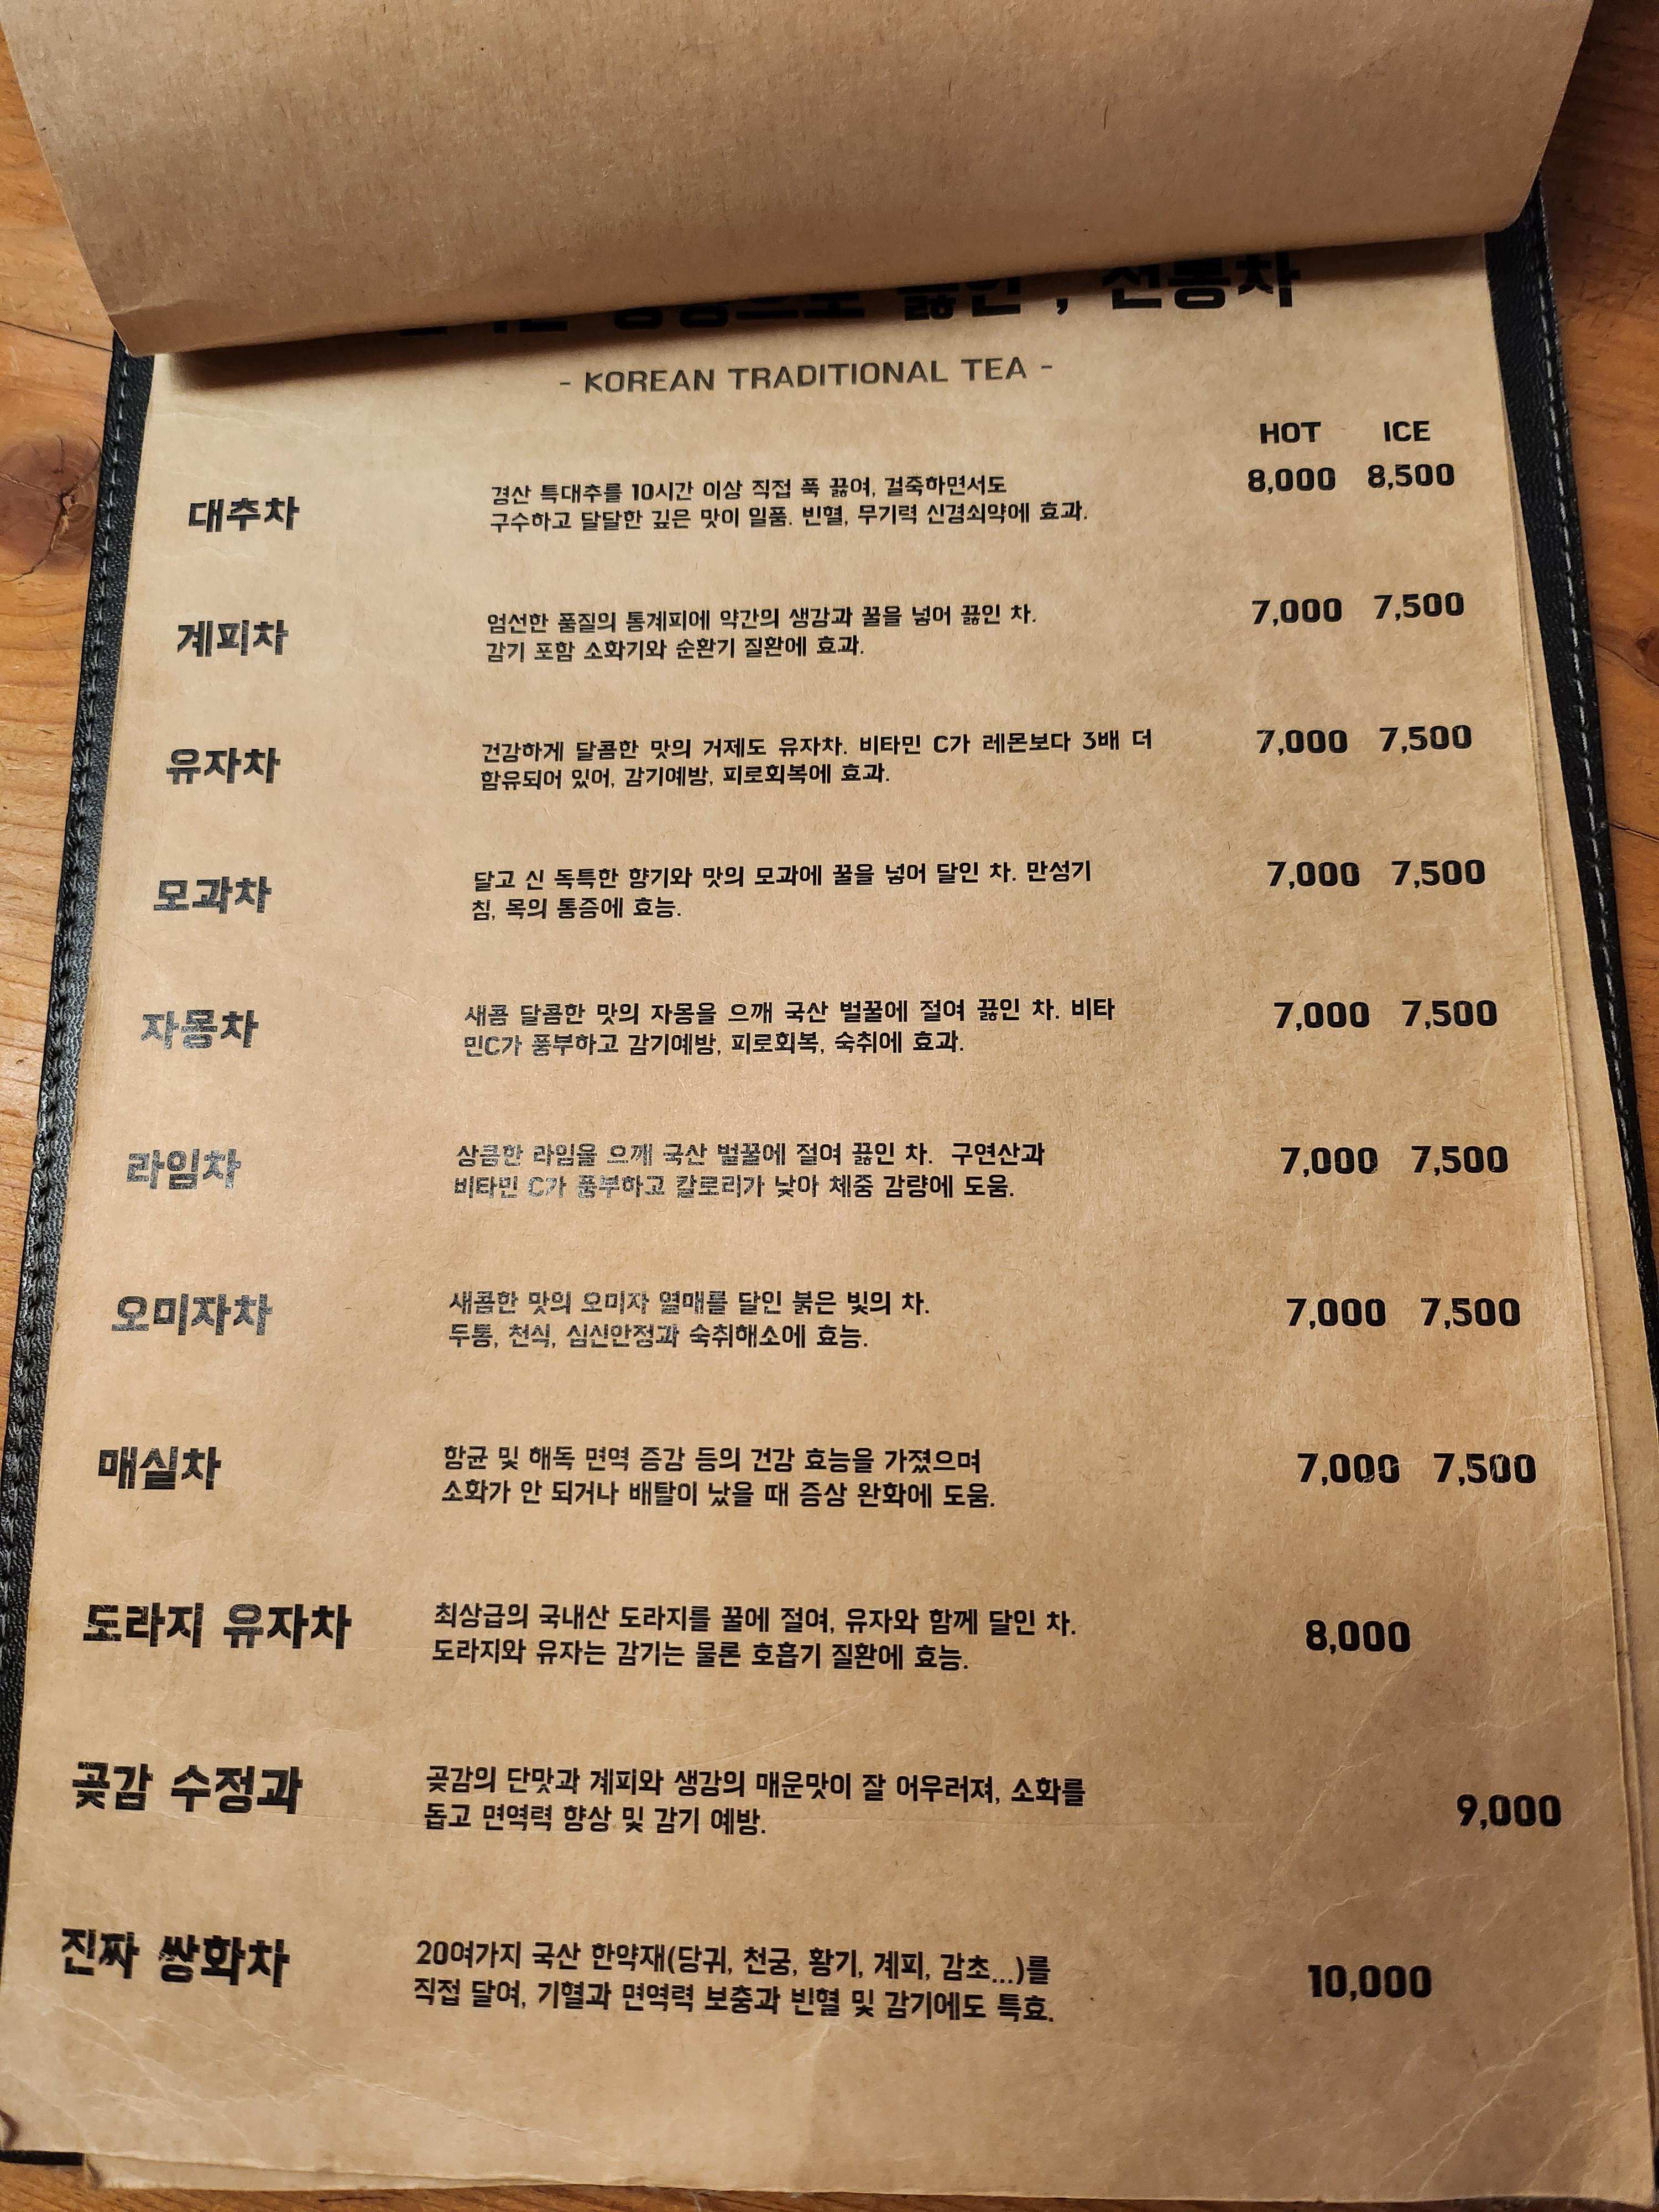 끓인 , 전통차
- KOREAN TRADITIONAL TEA -
HOT ICE
대추차
경산 특대추를 10시간 이상 직접 푹 끓여, 걸죽하면서도
구수하고 달달한 깊은 맛이 일품. 빈혈, 무기력 신경쇠약에 효과.
8,000 8,500
계피차
엄선한 품질의 통계피에 약간의 생강과 꿀을 넣어 끓인 차.
감기 포함 소화기와 순환기 질환에 효과.
7,000 7,500
유자차
건강하게 달콤한 맛의 거제도 유자차. 비타민 C가 레몬보다 3배 더
함유되어 있어, 감기예방, 피로회복에 효과.
7,000 7,500
모과차
달고 신 독특한 향기와 맛의 모과에 꿀을 넣어 달인 차. 만성기
침, 목의 통증에 효능.
7,000 7,500
자몽차
새콤 달콤한 맛의 자몽을 으깨 국산 벌꿀에 절여 끓인 차. 비타
민C가 풍부하고 감기예방, 피로회복, 숙취에 효과.
7,000 7,500
라임차
상큼한 라임을 으깨 국산 벌꿀에 절여 끓인 차. 구연산과
비타민 C가 풍부하고 칼로리가 낮아 체중 감량에 도움.
7,000 7,500
오미자차
새콤한 맛의 오미자 열매를 달인 붉은 빛의 차.
두통, 천식, 심신안정과 숙취해소에 효능.
7,000 7,500
매실차
항균 및 해독 면역 증강 등의 건강 효능을 가졌으며
소화가 안 되거나 배탈이 났을 때 증상 완화에 도움.
7,000 7,500
도라지 유자차
최상급의 국내산 도라지를 꿀에 절여, 유자와 함께 달인 차.
도라지와 유자는 감기는 물론 호흡기 질환에 효능.
8,000
곶감 수정과
곶감의 단맛과 계피와 생강의 매운맛이 잘 어우러져, 소화를
돕고 면역력 향상 및 감기 예방.
9,000
진짜 쌍화차
20여가지 국산 한약재(당귀, 천궁, 황기, 계피, 감초...)를
직접 달여, 기혈과 면역력 보충과 빈혈 및 감기에도 특효.
10,000